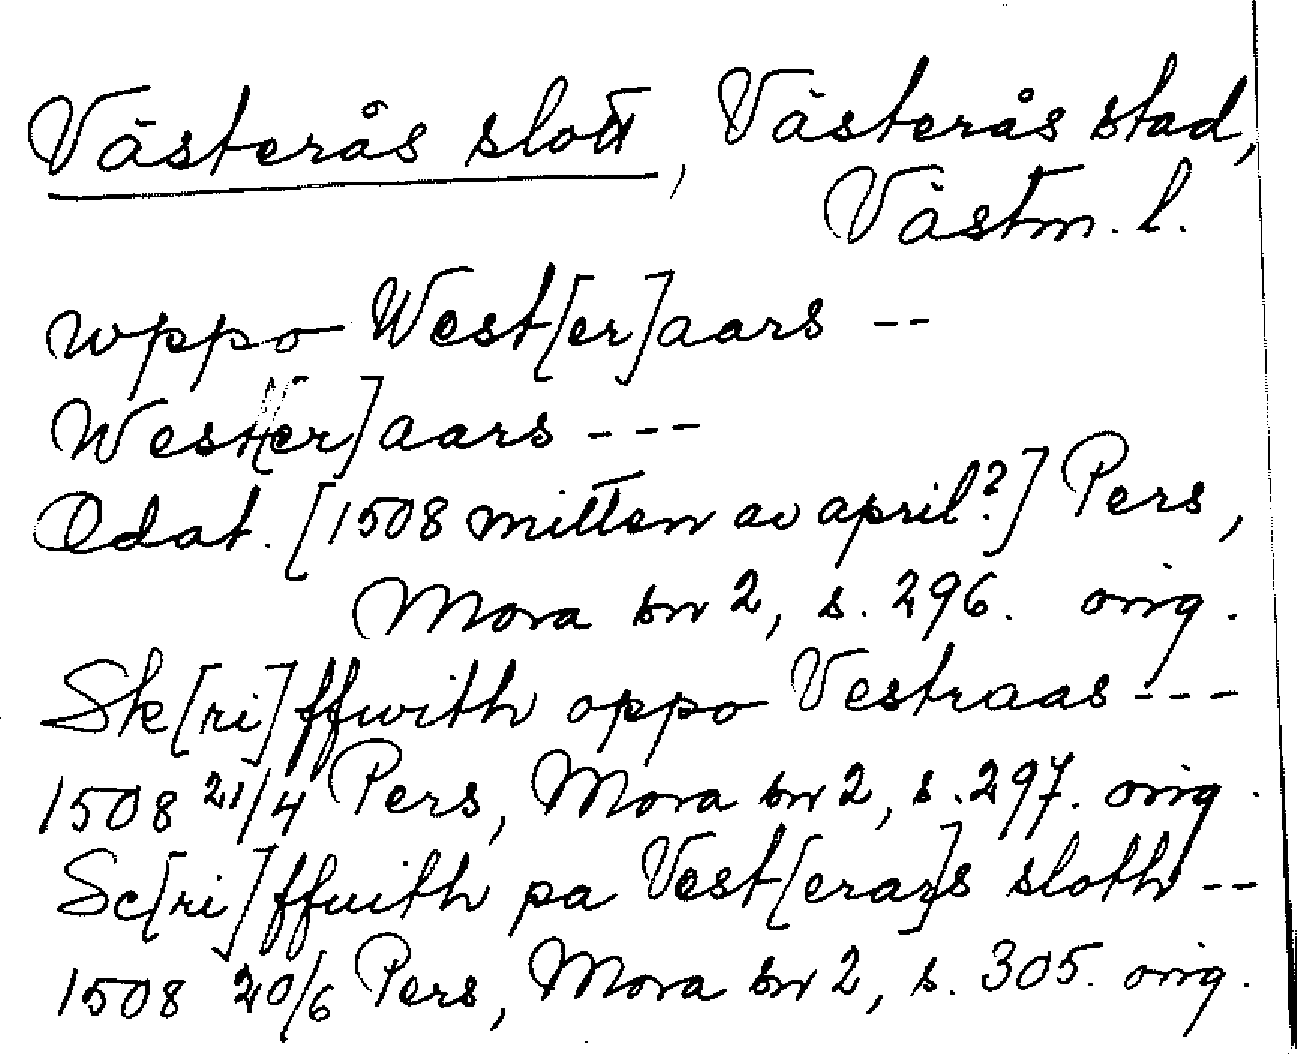 Västerås slott, Västerås stad,
Västm. l.
wppo West[er]aars --
West[er]aars ---
Odat. [1508 mitten av april?] Pers,
Mora br 2, s. 296. orig.
Sk[ri]ffwith oppo Vestraas ---
1508 21/4 Pers, Mora br 2, s. 297. orig.
Sc[ri]ffuith pa Vest[eraa]s sloth --
1508 20/6 Pers, Mora br 2, s. 305. orig.